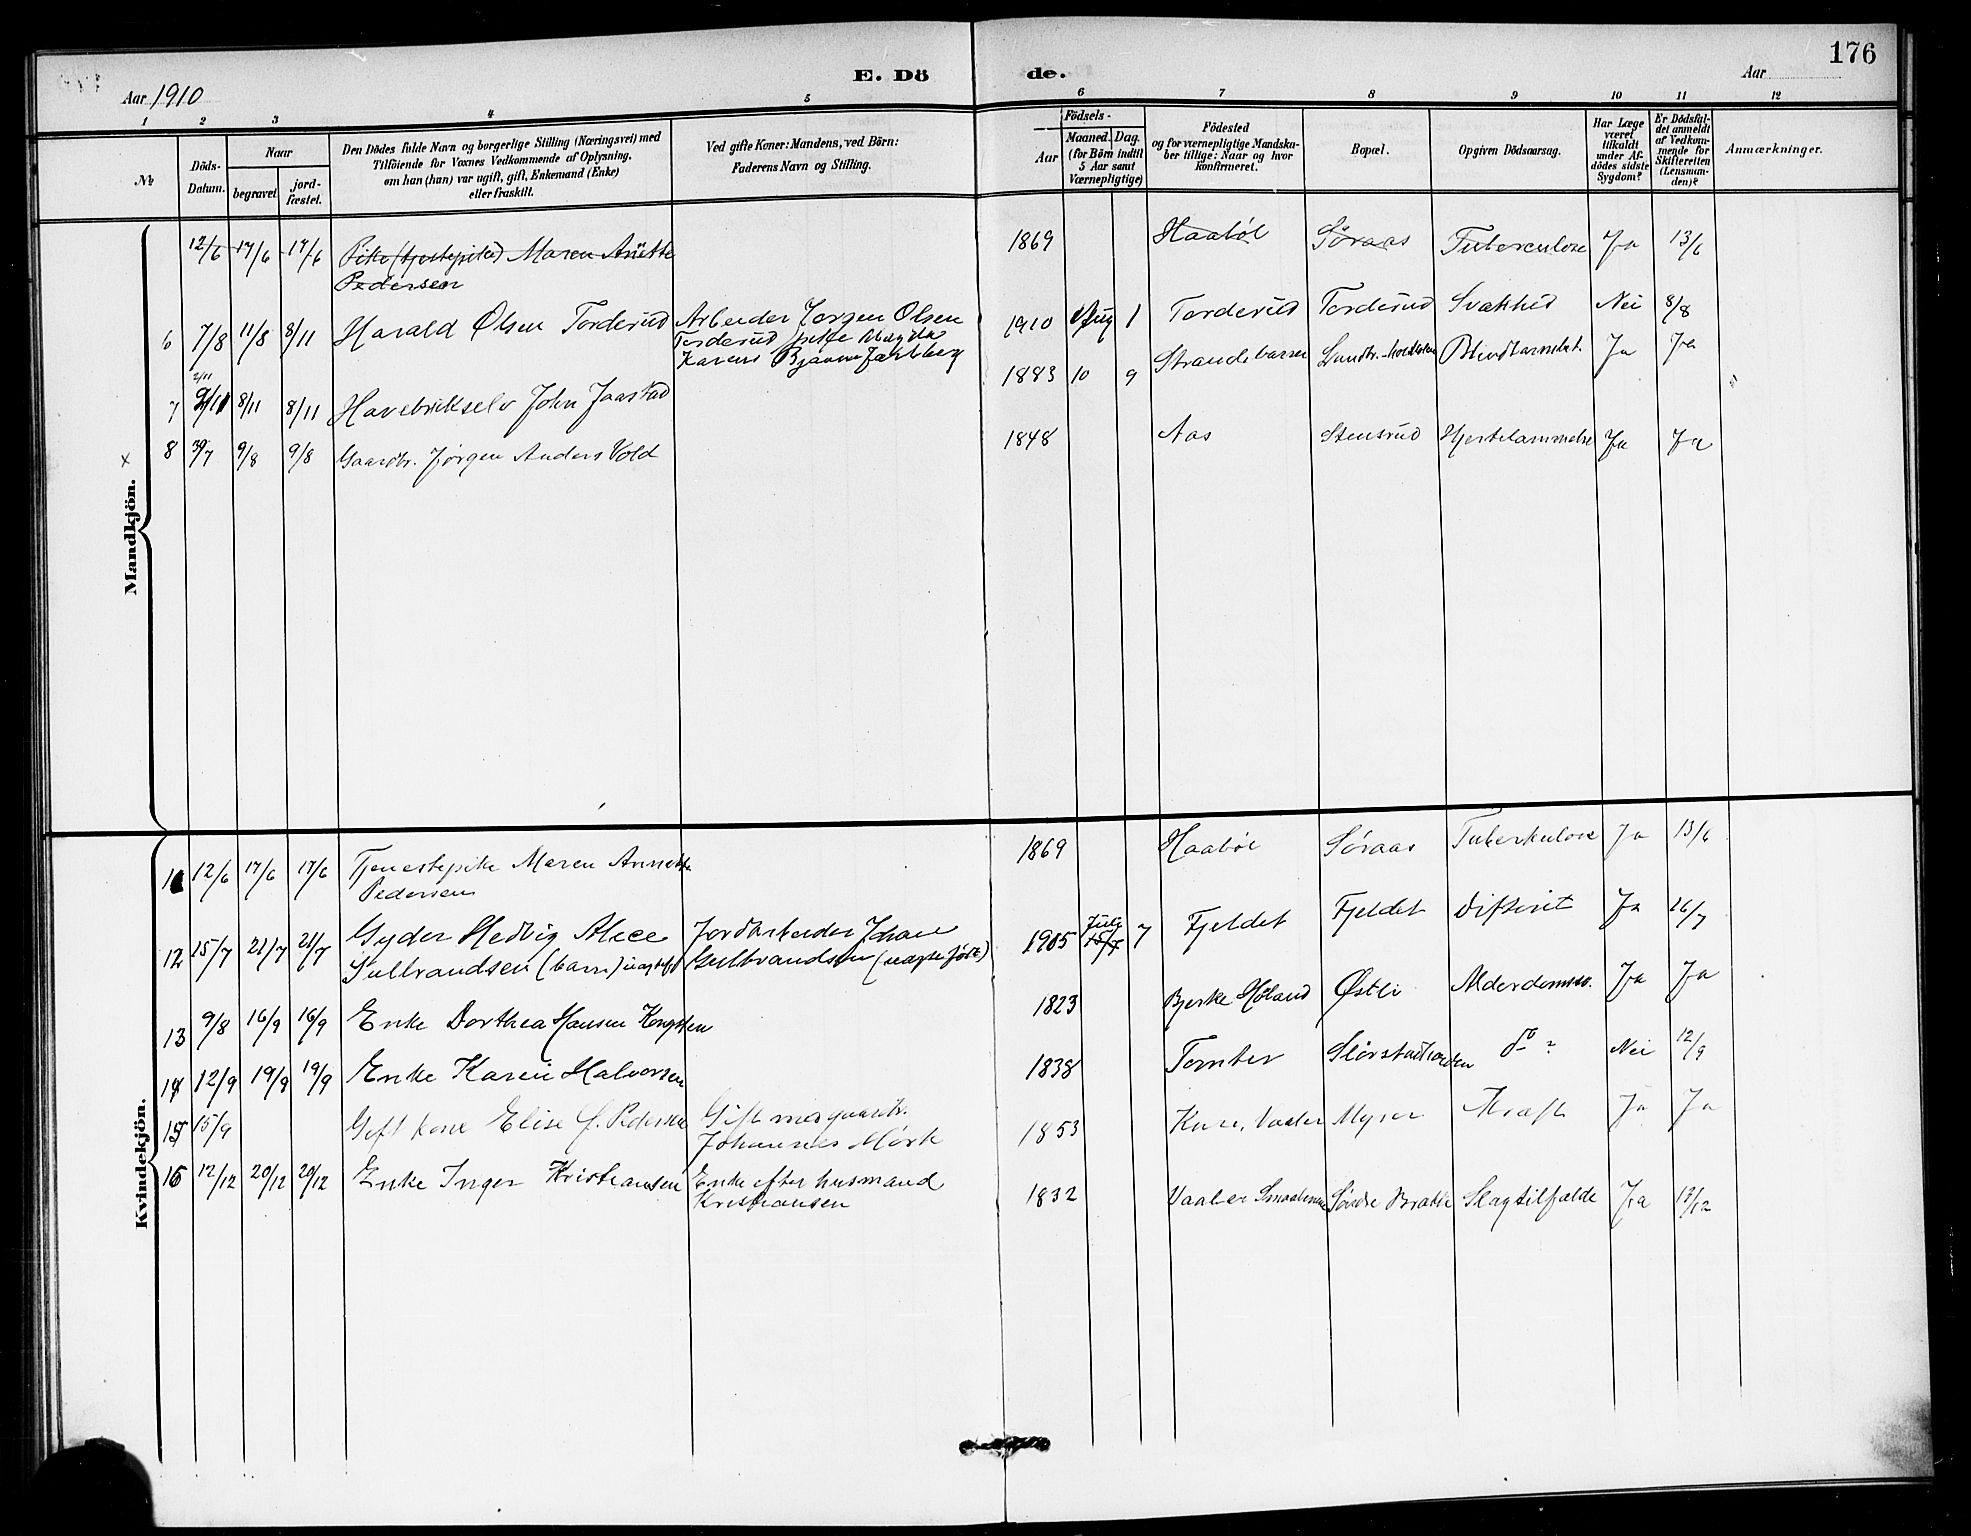 176
E. Dö de.
Aar 1910
Aar
1 2 3 4 5 6 7 8 9 10 11 12
№
Döds-
Datum.
Naar
begravet
jord-
fæstet.
Den Dödes fulde Navn og borgerlige Stilling (Næringsvei) med
Tilföiende for Voxnes Vedkommende af Oplysning,
om han (hun) var ugift, gift, Enkemand (Enke)
eller fraskilt.
Ved gifte Koner: Mandens, ved Börn:
Faderens Navn og Stilling.
Födsels-
Aar
Maaned. Dag.
(for Börn indtil
5 Aar samt
Værnepligtige)
Födested
og for værnepligtige Mandska-
ber tillige: Naar og hvor
konfirmeret.
Bopæl.
Opgiven Dödsaarsag.
Har Læge
været
tilkaldt
under Af-
dödes sidste
Sygdom?
Er Dödsfal-
det anmeldt
af Vedkom-
mende for
Skifteretten
(Lensman-
den)?
Anmærkninger.
Mandkjön.
12/6 17/6 17/6 Pike (tjenestepike) Maren Anette 1869 Haabøl Søraas Tuberculose Ja 13/6
Pedersen
6 7/8 11/8 8/11 Harald Olsen Torderud Arbeider Jørgen Olsen 1910 Aug 1 Torderud Torderud Svakhed Nei 8/8
Torderud
2/11
7 8/11 8/11 John Jaastad 1883 10 9 Strandebarm Ja Ja
x 8 30/7 9/8 9/8 Gaardbr. Jørgen Anders Vold 1848 Aas Stensrud Hjertelammelse Ja Ja
Kvindekjön.
11 12/6 17/6 17/6 Tjenestepike Maren Annette 1869 Haabøl Søraas Tuberkulose Ja 13/6
Pedersen
12 15/7 21/7 21/7 Gyder Hedvig Alice Jordarbeider Johan 1905 Juli 7 Fjeldet Fjeldet Difterit Ja 16/7
Gulbrandsen (barn) Gulbrandsen
13 9/8 16/9 16/9 Enke Dorthea Hansen 1823 Bjerke Høland Østli Alderdomssv. Ja Ja
14 12/9 19/9 19/9 Enke Karen Halvorsen 1838 Tomter do ? Nei 12/9
15 15/9 Gift kone Elise J. Pedersen Gift m. gaardbr. 1853 Vaaler Myrer Kræft Ja Ja
Johannes Mørk
16 12/12 20/12 20/12 Enke Inger Kristiansen Enke efter husmand 1832 Vaaler Smaalenene Søndre Brække Slagtilfælde Ja 13/12
Kristiansen